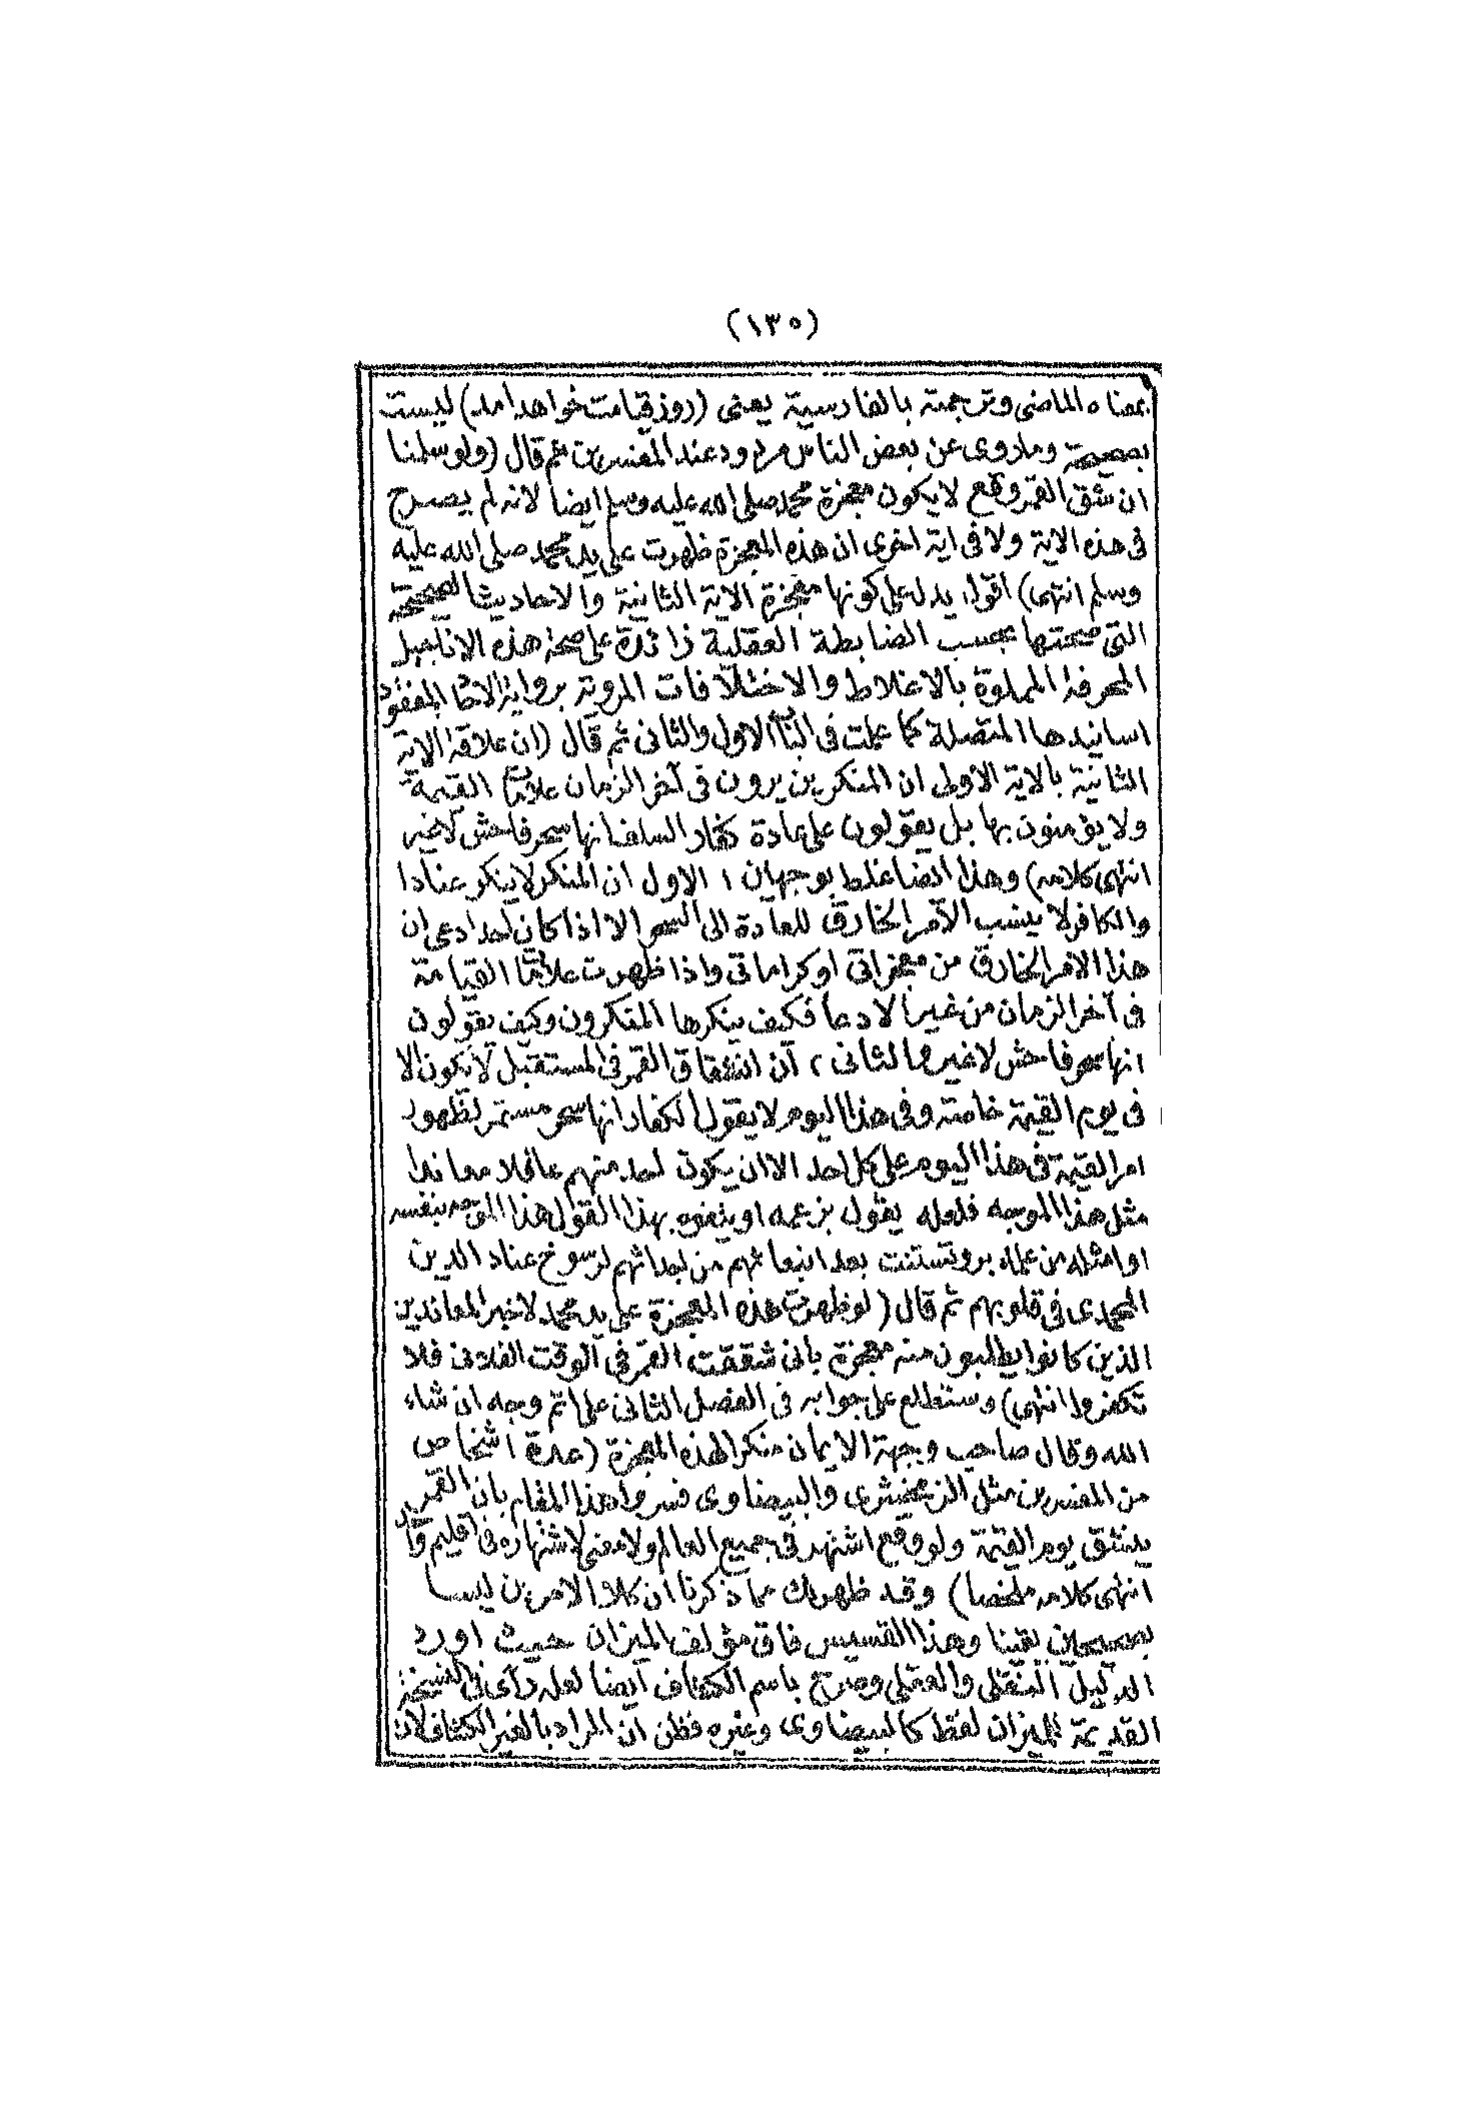 (١٣٥)
بمعناه الماضى وترجمته بالفارسية يعنى (روز قيامت خواهد امد) ليست
بصحيحة وما روى عن بعض الناس مردود عند المفسرين ثم قال (ولو سلمنا
ان شق القمر وقع لا يكون معجزة محمد صلى الله عليه وسلم ايضا لانه لم يصرح
فى هذه الاية ولا فى اية اخرى ان هذه المعجزة ظهرت على يد محمد صلى الله عليه
وسلم انتهى) اقول يدل على كونها معجزة الاية الثانية والاحاديث الصحيحة
التى صحتها بحسب الضابطة العقلية زائدة على صحة هذه الاناجيل
المحرفة المملوة بالاغلاط والاختلافات المروية برواية الاحاد المفقود
اسانيدها المتصلة كما علمت فى الباب الاول والثانى ثم قال (ان علاقة الاية
الثانية بالاية الاولى ان المنكرين يرون فى آخر الزمان علامات القيمة
ولا يؤمنون بها بل يقولون على عادة كفار السلف انها سحر فاحش لا غير
انتهى كلامه) وهذا ايضا غلط بوجهين ١ الاول ان المنكر لا ينكر عنادا
والكافر لا ينسب الامر الخارق للعادة الى السحر الا اذا كان احد ادعى ان
هذا الامر الخارق من معجزاتى او كراماتى واذا ظهرت علامات القيامة
فى آخر الزمان من غير الادعا فكيف ينكرها المنكرون وكيف يقولون
انها سحر فاحش لا غير والثانى ٢ ان انشقاق القمر فى المستقبل لا يكون الا
فى يوم القيمة خاصة وفى هذا اليوم لا يقول الكفار انها سحر مستمر لظهور
امر القيمة فى هذا اليوم على كل احد الا ان يكون احد منهم عاقلا معاندا
مثل هذا الموجه فلعله يقول بزعمه او يتفوه بهذا القول هذا الموجه بنفسه
او امثله من علماء بروتستنت بعد انبعاثهم من اجداثهم لرسوخ عناد الدين
المحمدى فى قلوبهم ثم قال (لو ظهرت هذه المعجزة على يد محمد لاخبر المعاندين
الذين كانوا يطلبون منه معجزة بانى شققت القمر فى الوقت الفلانى فلا
تكفروا انتهى) وستطلع على جوابه فى الفصل الثانى على اتم وجه ان شاء
الله وقال صاحب وجهة الايمان منكرا لهذه المعجزة (عدة اشخاص
من المفسرين مثل الزمخشرى والبيضاوى فسروا هذا المقام بان القمر
ينشق يوم القيمة ولو وقع اشتهر فى جميع العالم ولا معنى لاشتهاره فى اقليم واحد
انتهى كلامه ملخصا) وقد ظهر لك مما ذكرنا ان كلا الامرين ليسا
بصحيحين يقينا وهذا القسيس فاق مؤلف الميزان حيث اورد
الدليل النقلى والعقلى وصرح باسم الكشاف ايضا لعله رأى فى النسخة
القديمة للميزان لفظ كالبيضاوى وغيره فظن ان المراد بالغير الكشاف لان